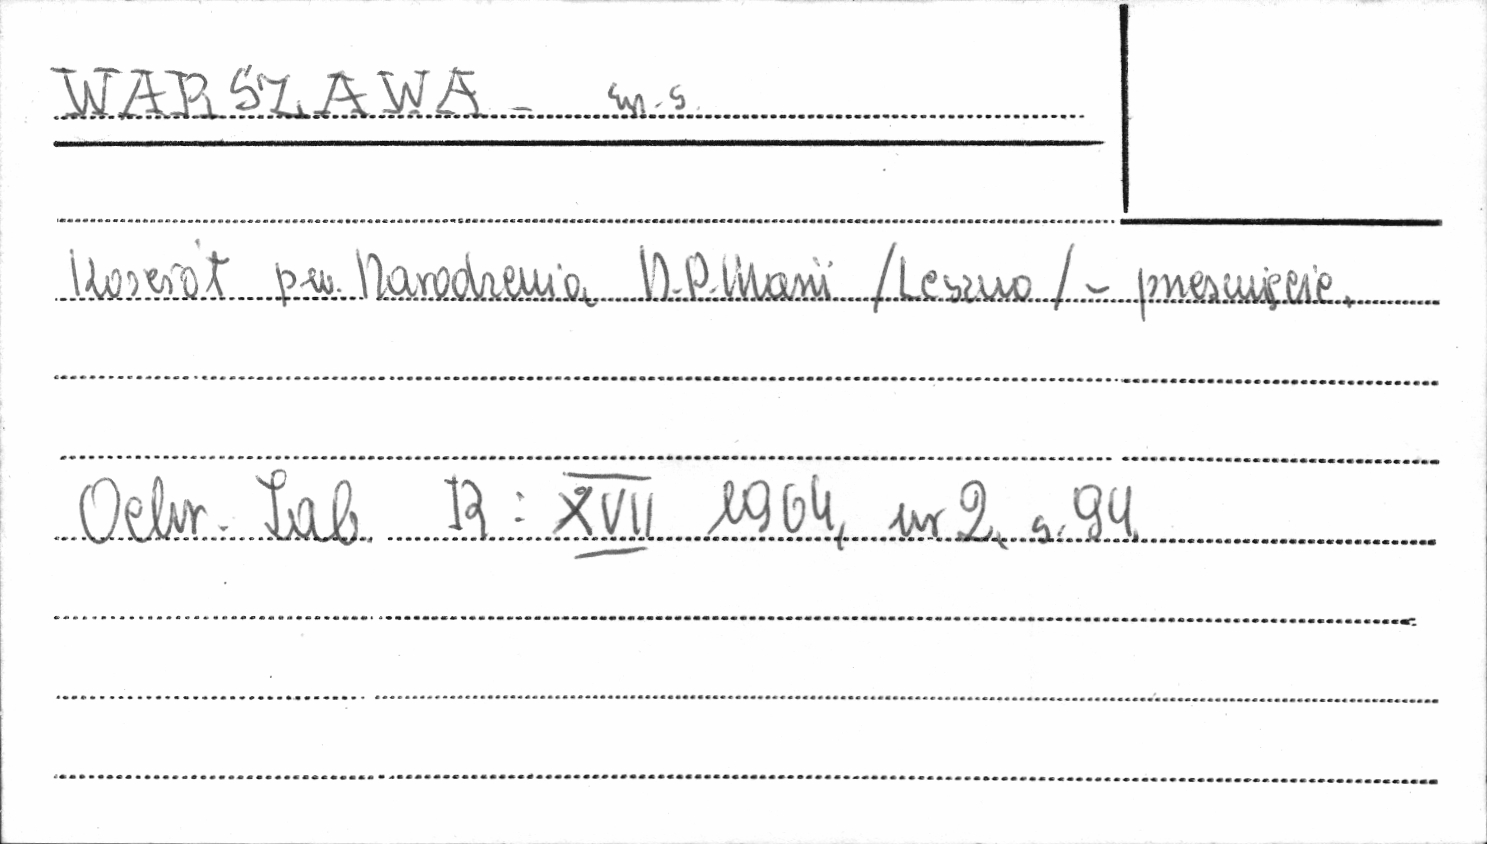 WARSZAWA - m.s.
Kościół pw. Narodzenia N.P.Marii /Leszno/ - przesunięcie.
Ochr. Zab. R: XVII 1964, nr 2, s. 94.